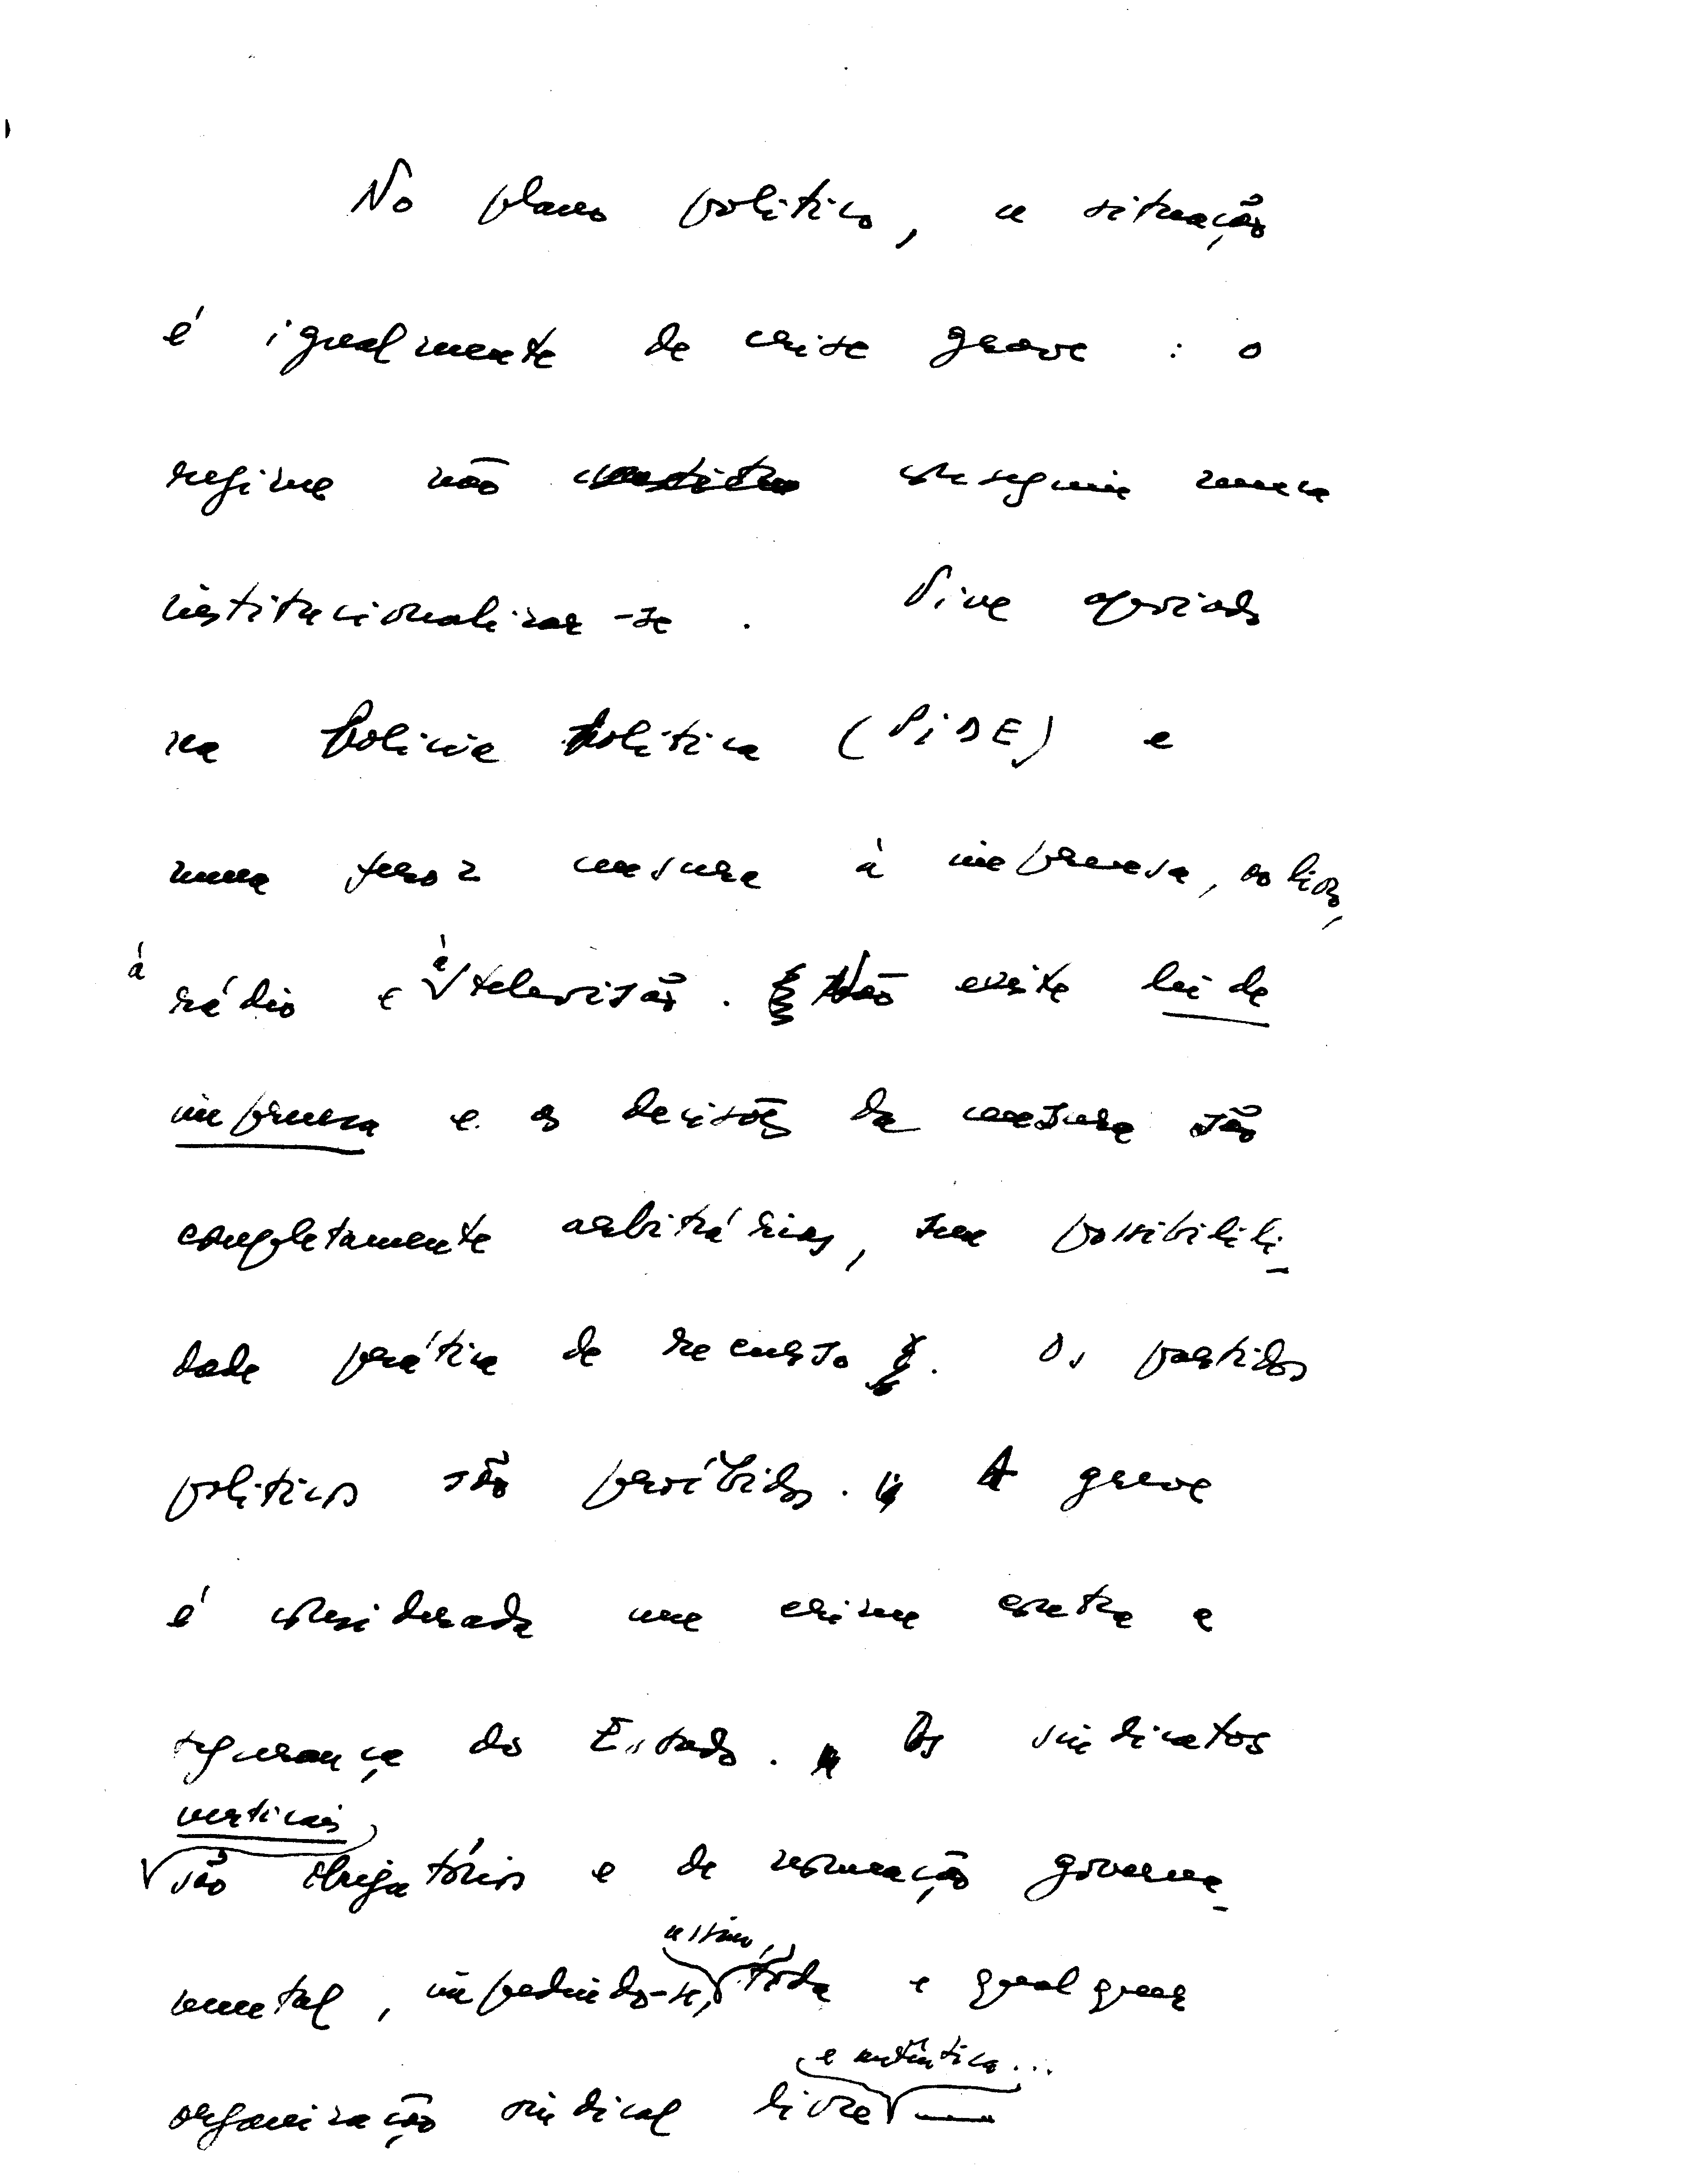 No plano politico, a situação
é igualmente de crise grave : o
regime não conseguiu nunca
institucionalizar-se . Vive apoiado
na Policia Politica (PIDE) e
numa feroz censura à imprensa, ao livro,
à rádio e à televisão . Não existe lei de
imprensa e as decisões da censura são
completamente arbitrárias, sem possibilili-
dade prática de recurso . Os partidos
politicos são proíbidos . A greve
é considerada um crime contra a
segurança do Estado . Os sindicatos
verticais
são obrigatórios e de nomeação governa-
assim,
mental , impedindo-se, toda e qualquer
e autêntica...
organização sindical livre